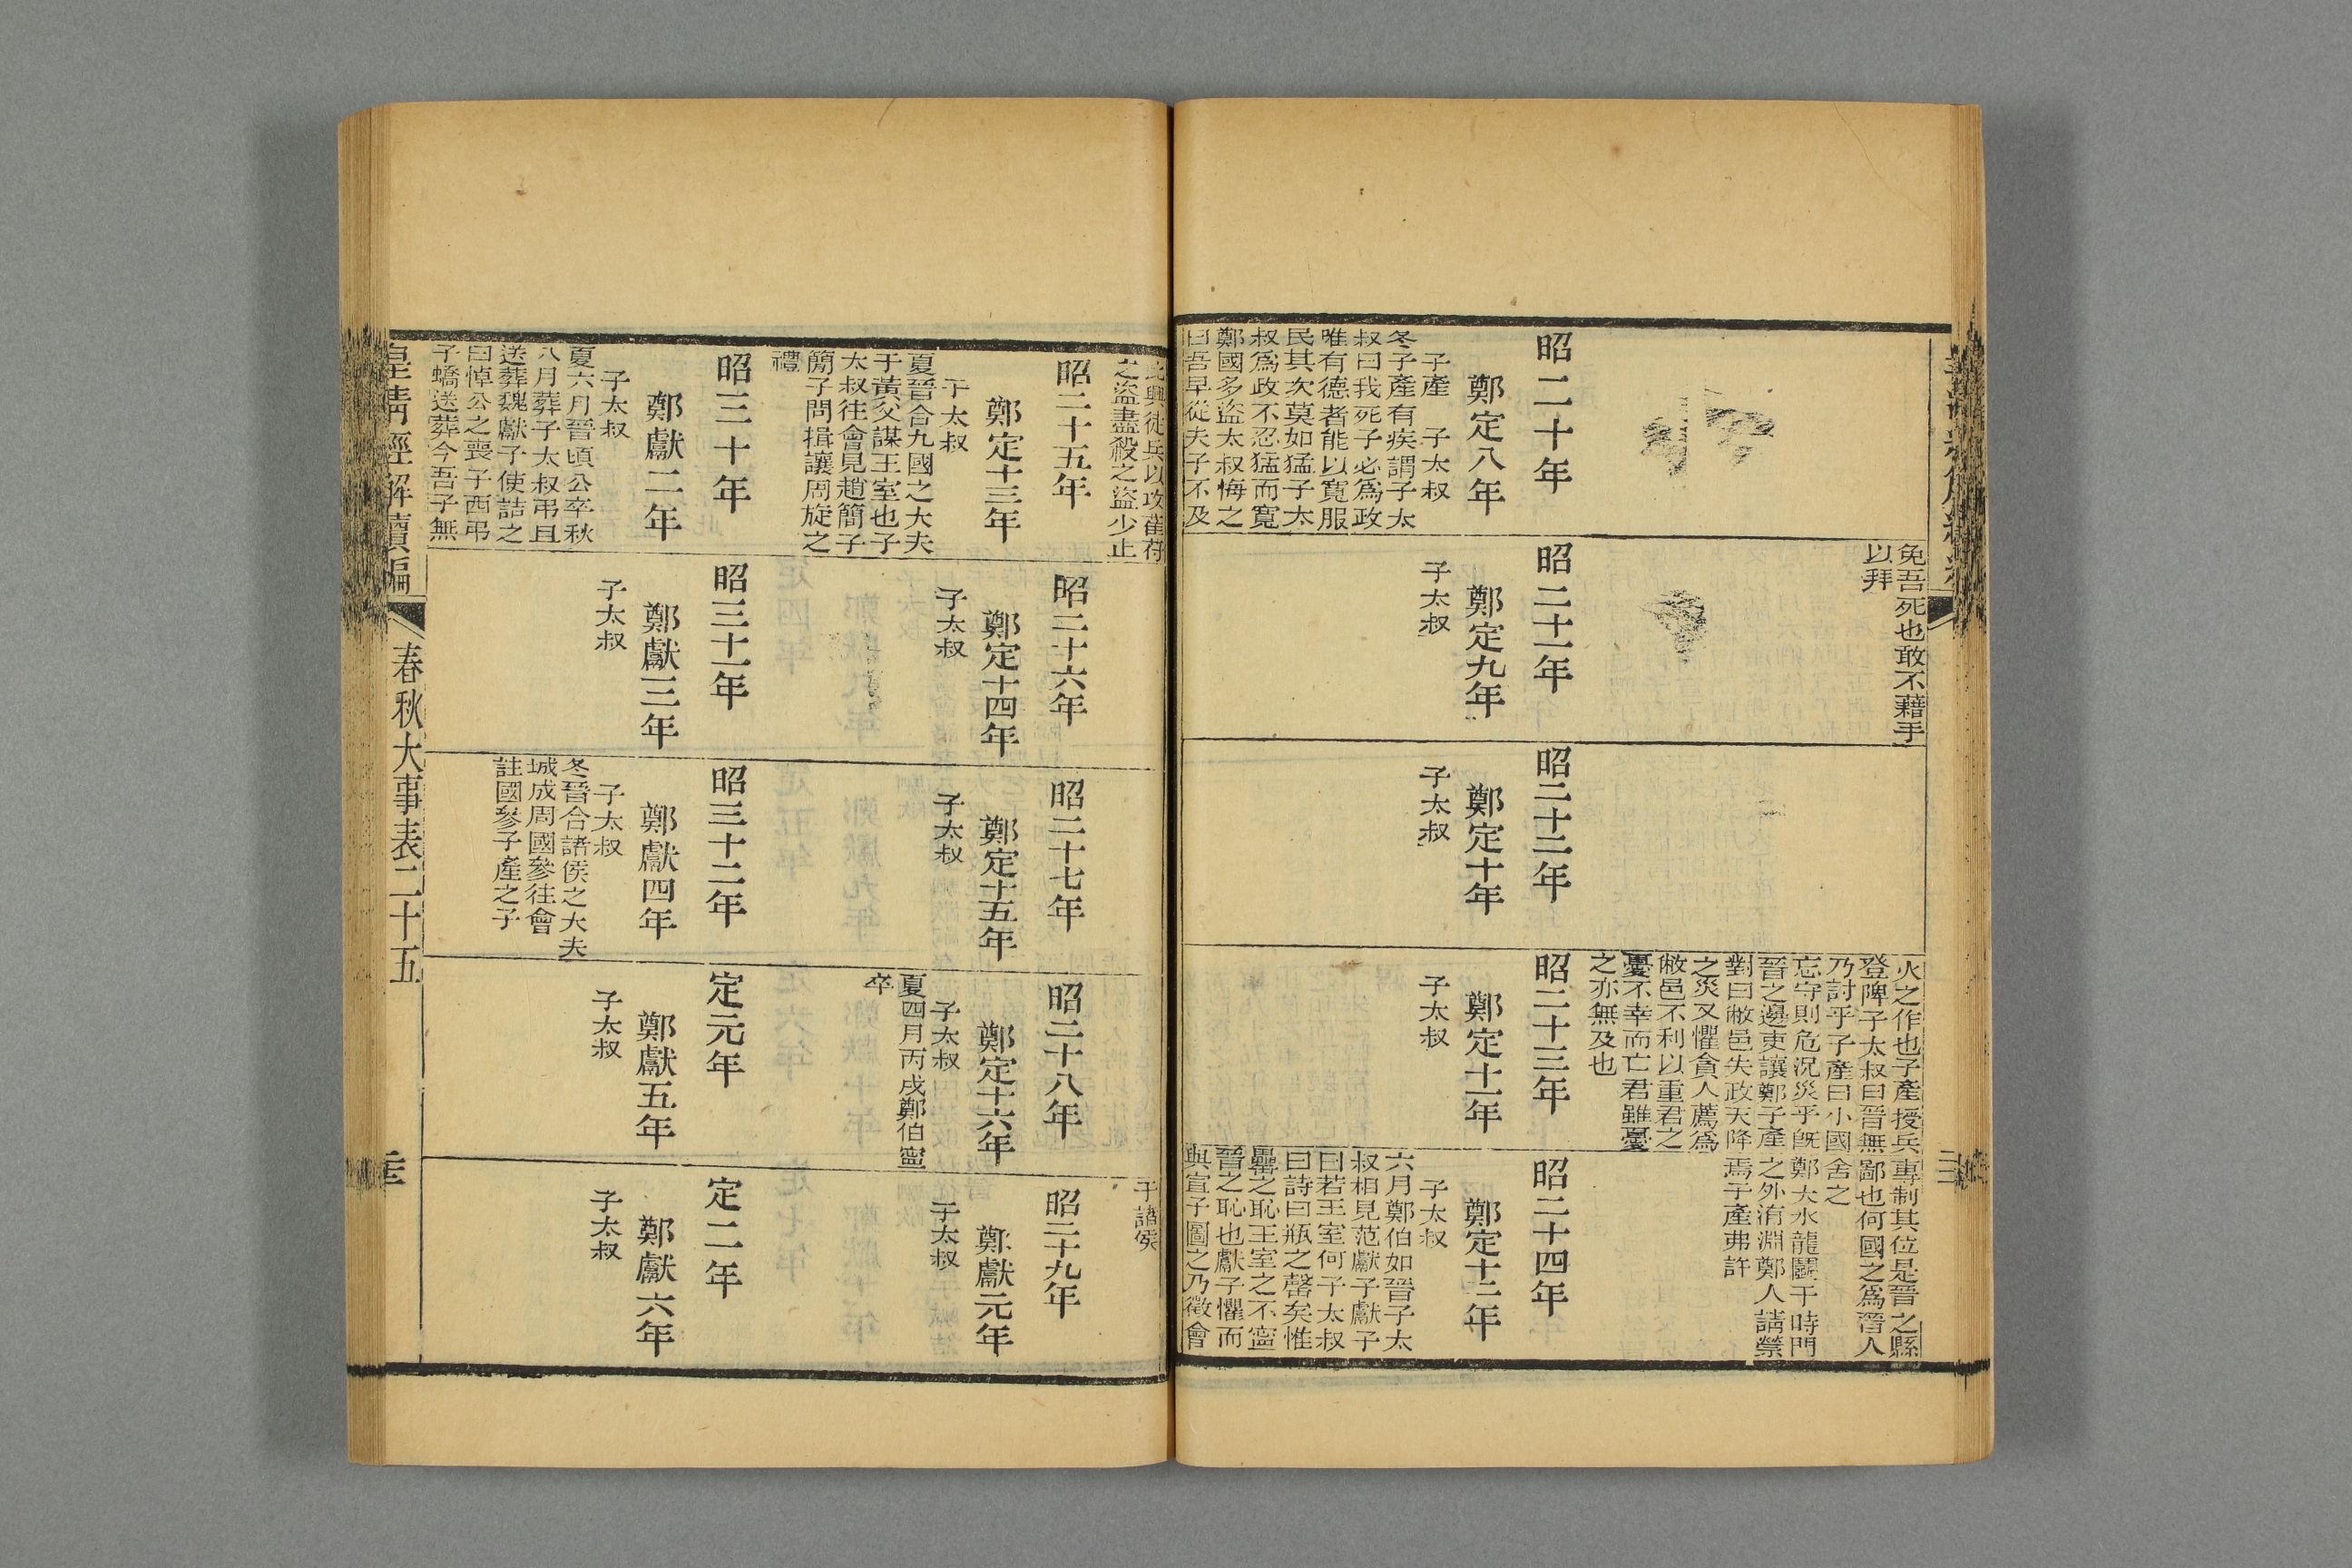 免吾死也敢不藉手
以拜
火之作也子產授兵
登陴子太叔曰晉無
乃討乎子產曰小國
忘守則危況災乎旣
晉之邊吏讓鄭子產
對曰敝邑失政天降
之災又懼貪人薦爲
敝邑不利以重君之
憂不幸而亡君雖憂
之亦無及也
專制其位是晉之縣
鄙也何國之爲晉人
舍之
鄭大水龍鬭于時門
之外洧淵鄭人請禜
焉子產弗許
昭二十年
鄭定八年
子產 子太叔
冬子產有疾謂子太
叔曰我死子必爲政
唯有德者能以寬服
民其次莫如猛子太
叔爲政不忍猛而寬
鄭國多盜太叔悔之
曰吾早從夫子不及
昭二十一年
鄭定九年
子太叔
昭二十二年
鄭定十年
子太叔
昭二十三年
鄭定十一年
子太叔
昭二十四年
鄭定十二年
子太叔
六月鄭伯如晉子太
叔相見范獻子獻子
曰若王室何子太叔
曰詩曰瓶之罄矣惟
罍之恥王室之不寍
晉之恥也獻子懼而
與宣子圖之乃徵會
興徒兵以攻萑苻
之盜盡殺之盜少止
于諸侯
昭二十五年
鄭定十三年
子太叔
夏晉合九國之大夫
于黃父謀王室也子
太叔往會見趙簡子
簡子問揖讓周旋之
禮
昭二十六年
鄭定十四年
子太叔
昭二十七年
鄭定十五年
子太叔
昭二十八年
鄭定十六年
子太叔
夏四月丙戌鄭伯寍
卒
昭二十九年
鄭獻元年
子太叔
昭三十年
鄭獻二年
子太叔
夏六月晉頃公卒秋
八月葬子太叔弔且
送葬魏獻子使詰之
曰悼公之喪子西弔
子蟜送葬今吾子無
昭三十一年
鄭獻三年
子太叔
昭三十二年
鄭獻四年
子太叔
冬晉合諸侯之大夫
城成周國參往會
註國參子產之子
定元年
鄭獻五年
子太叔
定二年
鄭獻六年
子太叔
皇淸經解續編
春秋大事表二十五